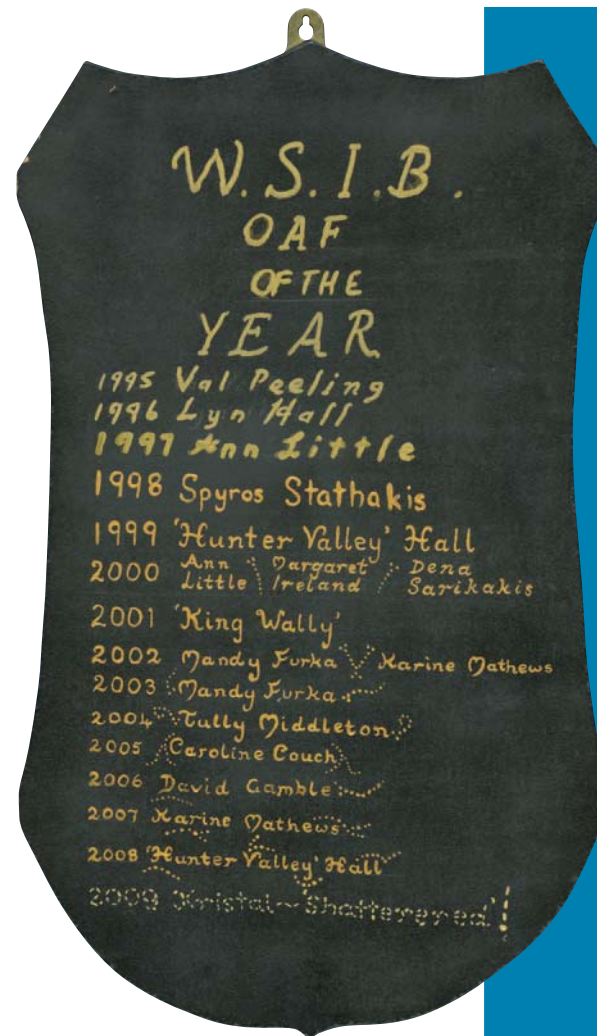 W.S.I.B.
OAF
OF THE
YEAR
1995 Val Peeling
1996 Lyn Hall
1997 Ann Little
1998 Spyros Stathakis
1999 'Hunter Valley' Hall
2000 Ann Little Margaret Ireland Dena Sarikakis
2001 'King Wally'
2002 Mandy Furka Karine Mathews
2003 Mandy Furka
2004 Tully Middleton
2005 Caroline Couch
2006 David Gamble
2007 Karine Mathews
2008 'Hunter Valley' Hall
2009 Kristal~'Shatterered'!